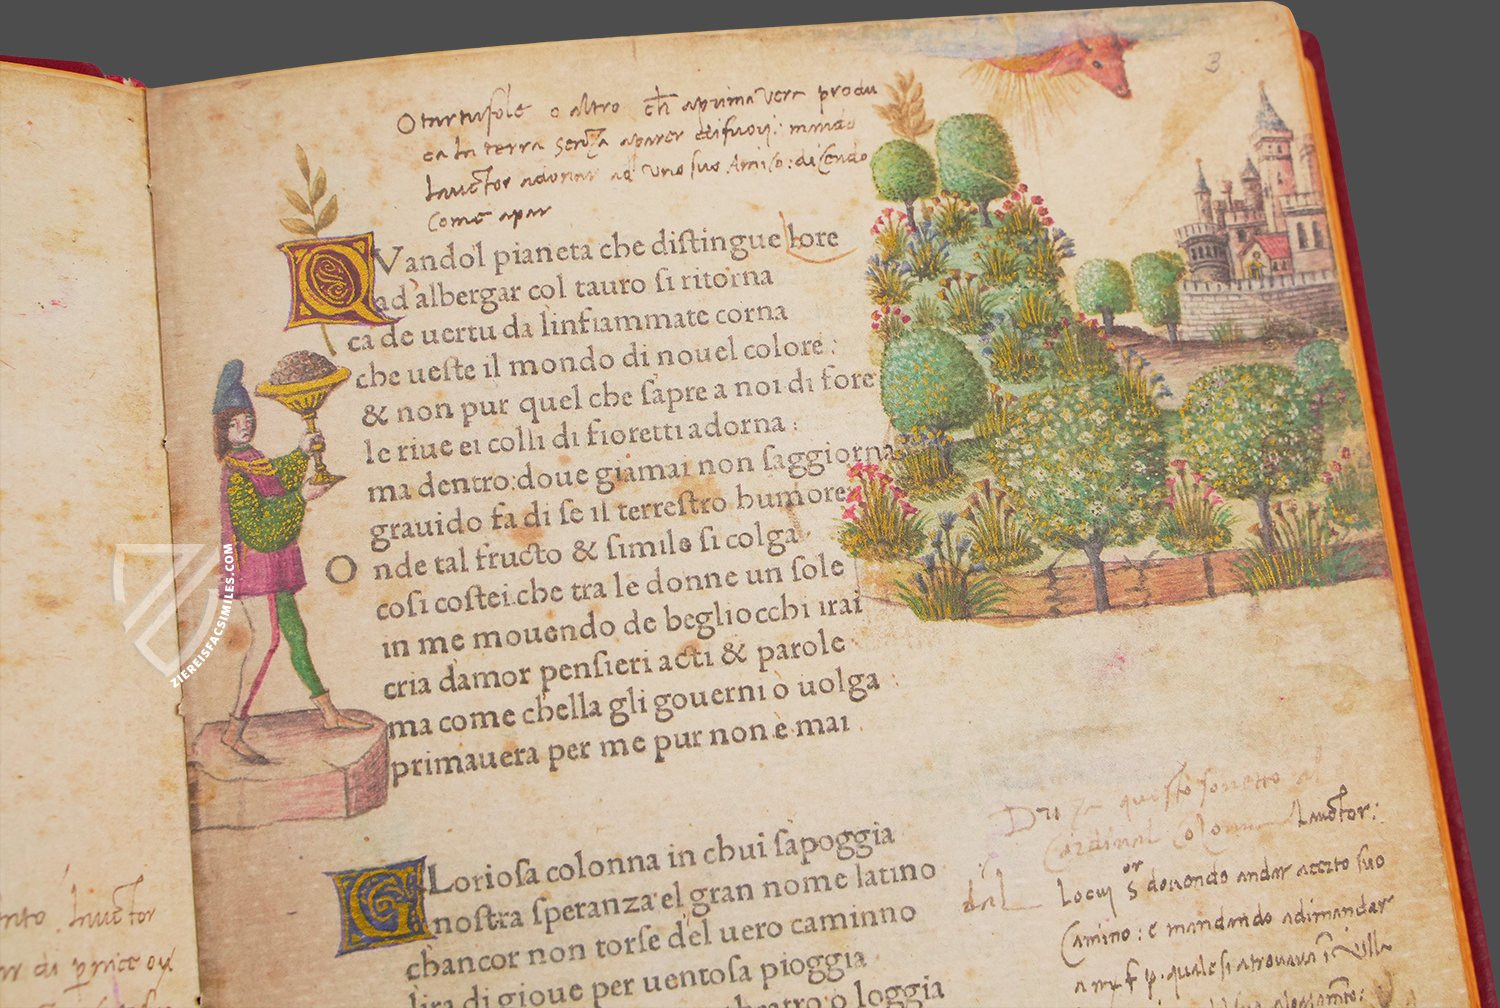 3
O tartufole o altro ch aprima vera produ
ca la terra senza aparer difuori: mando
lauctor adonar ad uno suo Amico: dicendo
Come apar
QVandol pianeta che distingue lore
ad albergar col tauro si ritorna
ca de uertu da linfiammate corna
che ueste il mondo di nouel colore:
& non pur quel che sapre a noi di fore
le riue ei colli di fioretti adorna:
ma dentro: doue giamai non saggiorna
grauido fa di se il terrestro humore
Onde tal fructo & simile si colga
cosi costei. che tra le donne un sole
in me mouendo de begliocchi irai
cria damor pensieri acti & parole
ma come chella gli gouerni o uolga:
primauera per me pur non e mai.
GLoriosa colonna in chui sapoggia
nostra speranza el gran nome latino
chancor non torse del uero caminno
lira di gioue per uentosa pioggia
o loggia
questo sonetto al
Cardinal Colonna lauctor:
dal
Locui douendo andar accito suo
Camino: e mandando adimandar
qual si atrouaua
lauctor
ZIEREISFACSIMILES.COM